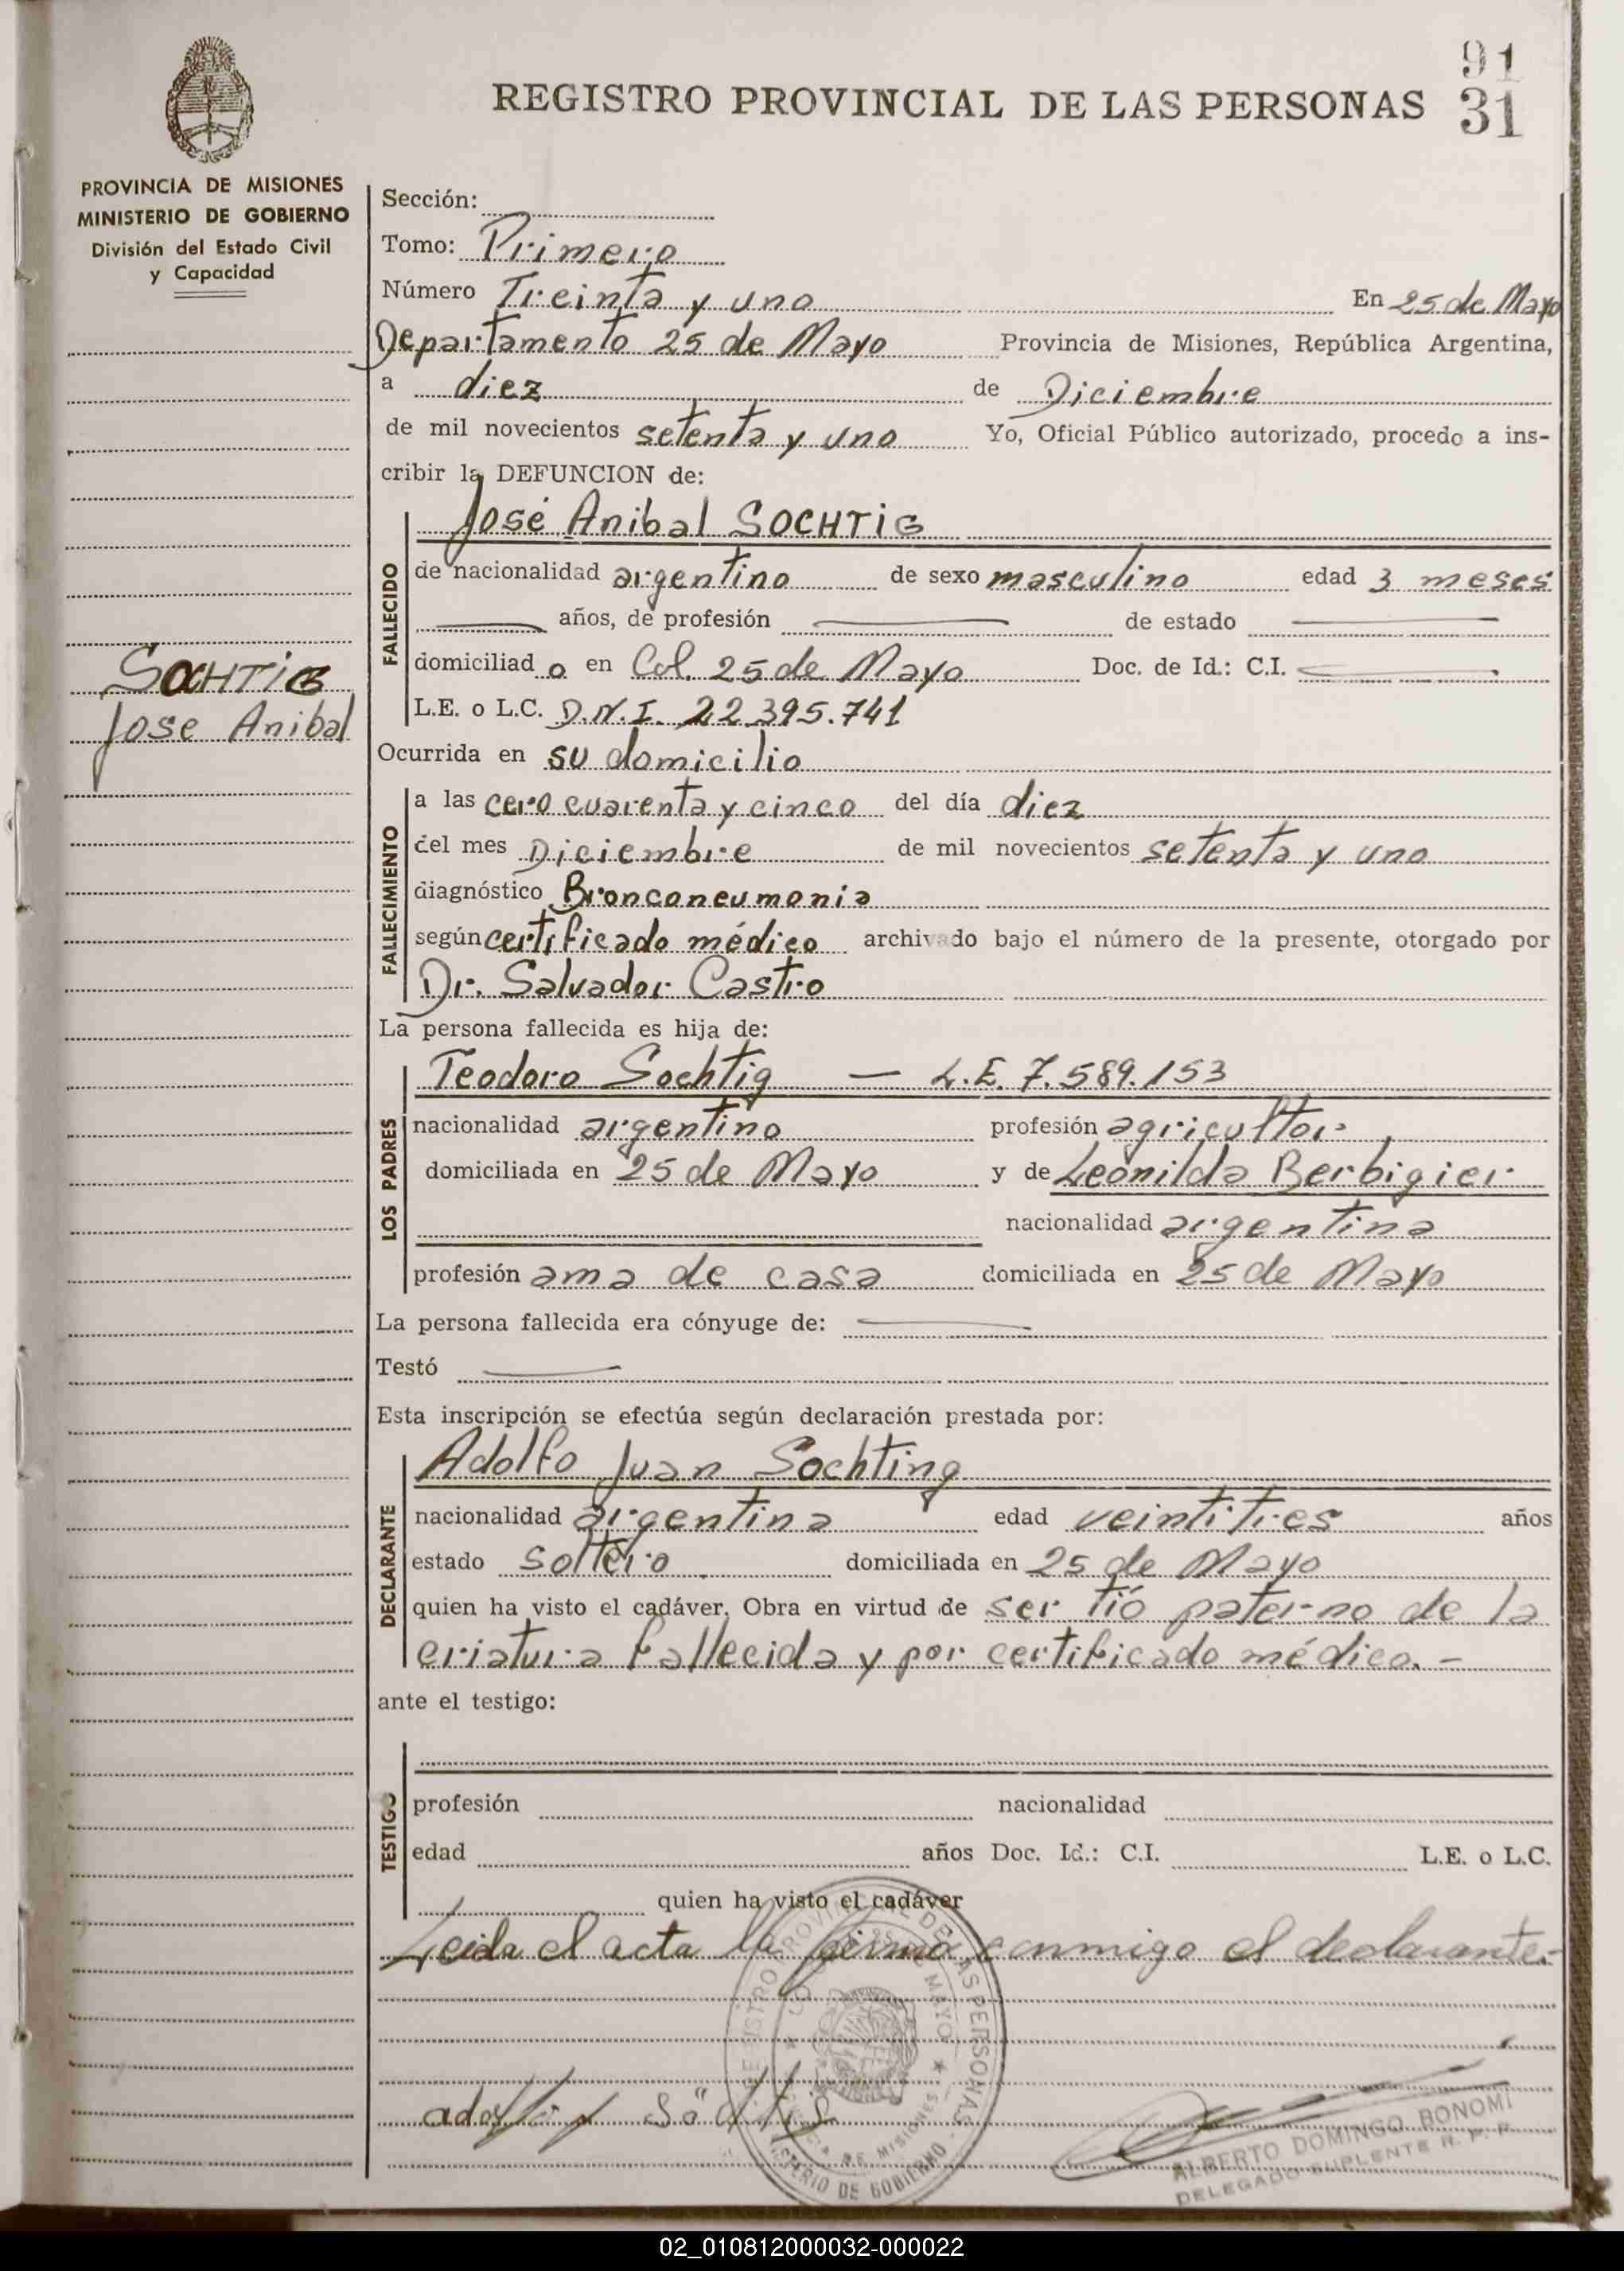 91
REGISTRO PROVINCIAL DE LAS PERSONAS 31
PROVINCIA DE MISIONES
MINISTERIO DE GOBIERNO
División del Estado Civil
y Capacidad
Sección:
Tomo: Primero
Número Treinta y uno En 25 de Mayo
Departamento 25 de Mayo Provincia de Misiones, República Argentina,
a diez de Diciembre
de mil novecientos setenta y uno Yo, Oficial Público autorizado, procedo a ins-
cribir la DEFUNCION de:
José Anibal SOCHTIG
FALLECIDO
de nacionalidad argentino de sexo masculino edad 3 meses
años, de profesión de estado
domiciliado en Col. 25 de Mayo Doc. de Id.: C.I.
L.E. o L.C. D.N.I. 22.395.741
SOCHTIG
Jose Anibal
Ocurrida en su domicilio
FALLECIMIENTO
a las cero cuarenta y cinco del día diez
del mes Diciembre de mil novecientos setenta y uno
diagnóstico Bronconeumonia
según certificado médico archivado bajo el número de la presente, otorgado por
Dr. Salvador Castro
La persona fallecida es hija de:
LOS PADRES
Teodoro Sochtig — L.E. 7.589.153
nacionalidad argentino profesión agricultor
domiciliada en 25 de Mayo y de Leonilda Berbigier
nacionalidad argentina
profesión ama de casa domiciliada en 25 de Mayo
La persona fallecida era cónyuge de:
Testó
Esta inscripción se efectúa según declaración prestada por:
DECLARANTE
Adolfo Juan Sochting
nacionalidad argentina edad veintitres años
estado soltero domiciliada en 25 de Mayo
quien ha visto el cadáver. Obra en virtud de ser tío paterno de la
criatura fallecida y por certificado médico. -
ante el testigo:
TESTIGO
profesión nacionalidad
edad años Doc. Id.: C.I. L.E. o L.C.
quien ha visto el cadáver
Leida el acta la firma conmigo el declarante.-
REGISTRO PROVINCIAL DE LAS PERSONAS
MINISTERIO DE GOBIERNO
PROVINCIA DE MISIONES
ALBERTO DOMINGO BONOMI
DELEGADO SUPLENTE R. P. P.
02_010812000032-000022